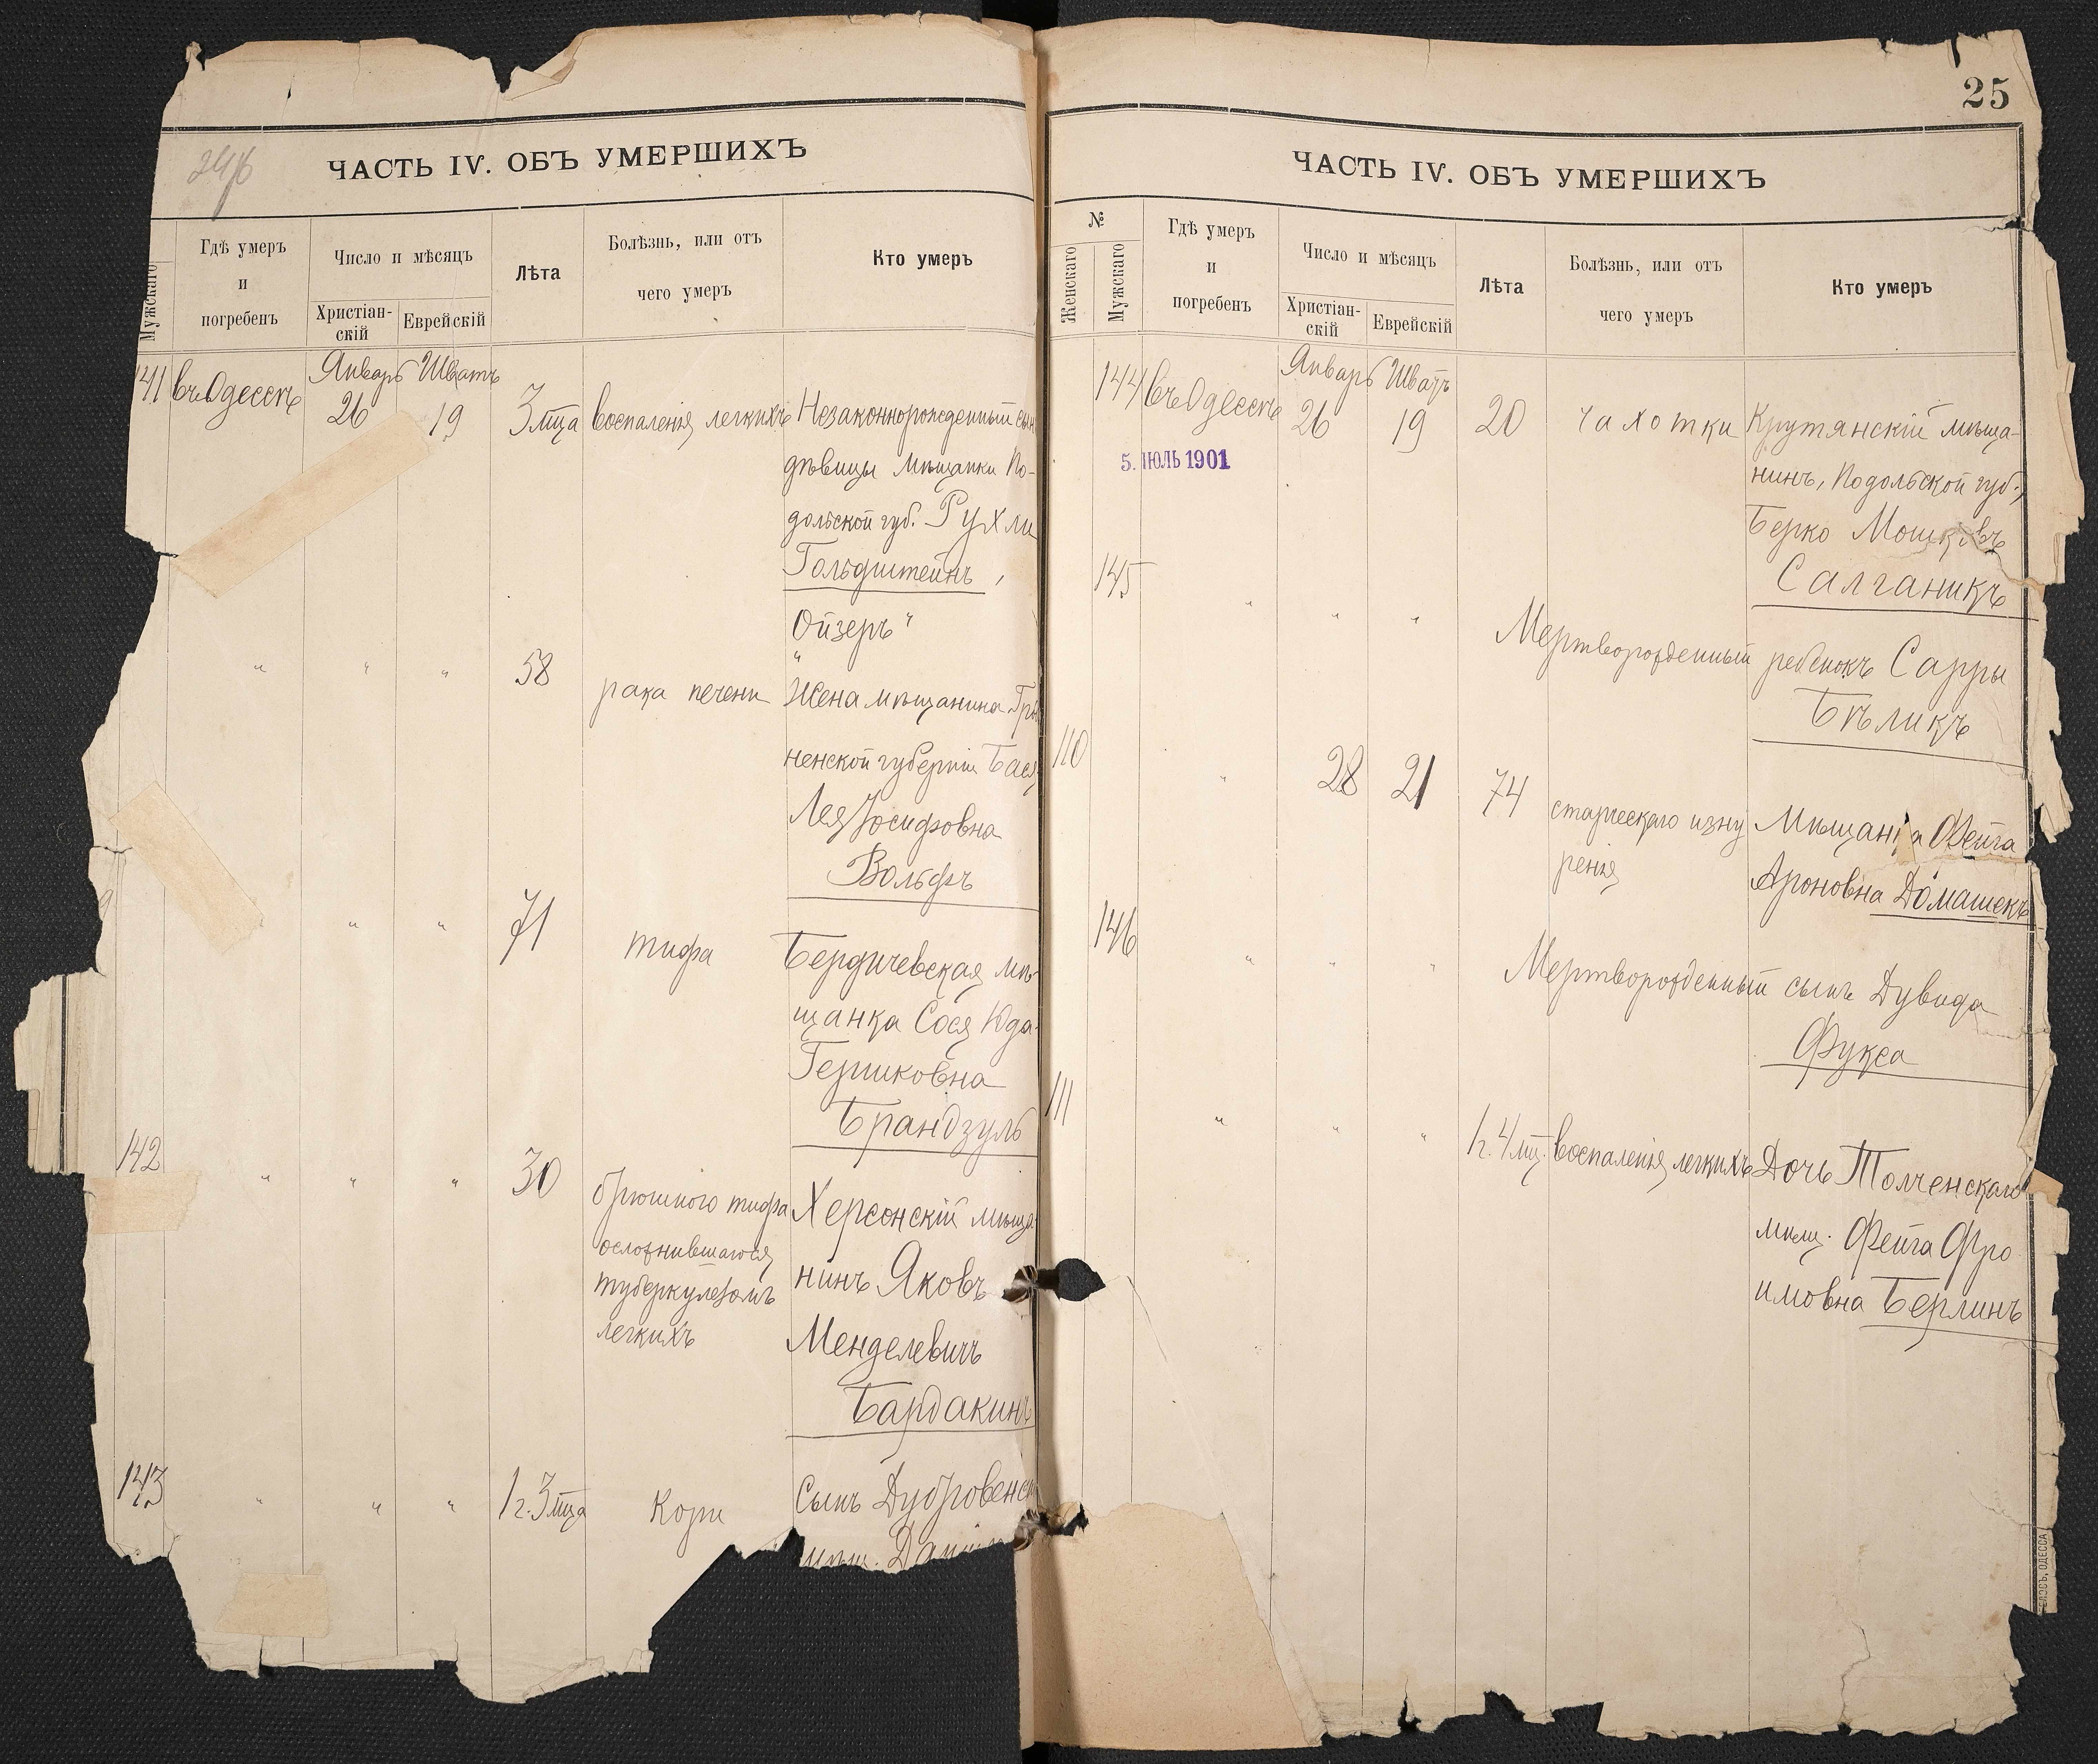 ЧАСТЬ IV. ОБЪ УМЕРШИХЪ
Мужскаго
Гдѣ умеръ
и
погребенъ
Число и мѣсяцъ
Христіан-
скій
Еврейскій
Лѣта
Болѣзнь, или отъ
чего умеръ
Кто умеръ
141 въ Одессѣ Январь 26 Шватъ 19 3 мца воспаленія легкихъ Незаконнорожденный сын
дѣвицы мѣщанки По-
дольской губ. Рухли
Гольдштейнъ,
„Ойзеръ“
„ „ „ 58 рака печени Жена мѣщанина Гро
ненской губерніи Бася
Лея Іосифовна
Вольфъ
9 „ „ 71 тифа Бердичевская мѣ-
щанка Сося Юда-
Гершковна
Брандзуль
142 „ „ „ 30 брюшного тифа Херсонскій мѣща-
осложнившагося
нинъ Яковъ
туберкулезомъ
легкихъ
Менделевичъ
Бардакинъ
143 „ „ „ 1 г. 3 мца Кори Сынъ Дубровенс
мѣщ.
25
ЧАСТЬ IV. ОБЪ УМЕРШИХЪ
№
Женскаго
Мужскаго
Гдѣ умеръ
и
погребенъ
Число и мѣсяцъ
Христіан-
скій
Еврейскій
Лѣта
Болѣзнь, или отъ
чего умеръ
Кто умеръ
144 въ Одессѣ Январь 26 Шватъ 19 20 чахотки Крутянскій мѣща-
5. ІЮЛЬ 1901
нинъ, Подольской губ.,
Берко Мошковъ
Салганикъ
145 „ „ „ Мертворожденный ребенокъ Сарры
Бѣликъ
110 „ 28 21 74 старческаго изну Мѣщанка Фейга
ренія
Ароновна Домашекъ
146 „ „ „ Мертворожденный сынъ Дувида
Фукса
111 „ „ „ 1 г. 4 мц. воспаленія легкихъ Дочь Толченскаго
мѣщ. Фейга Фро
имовна Берлинъ
ОДЕССА